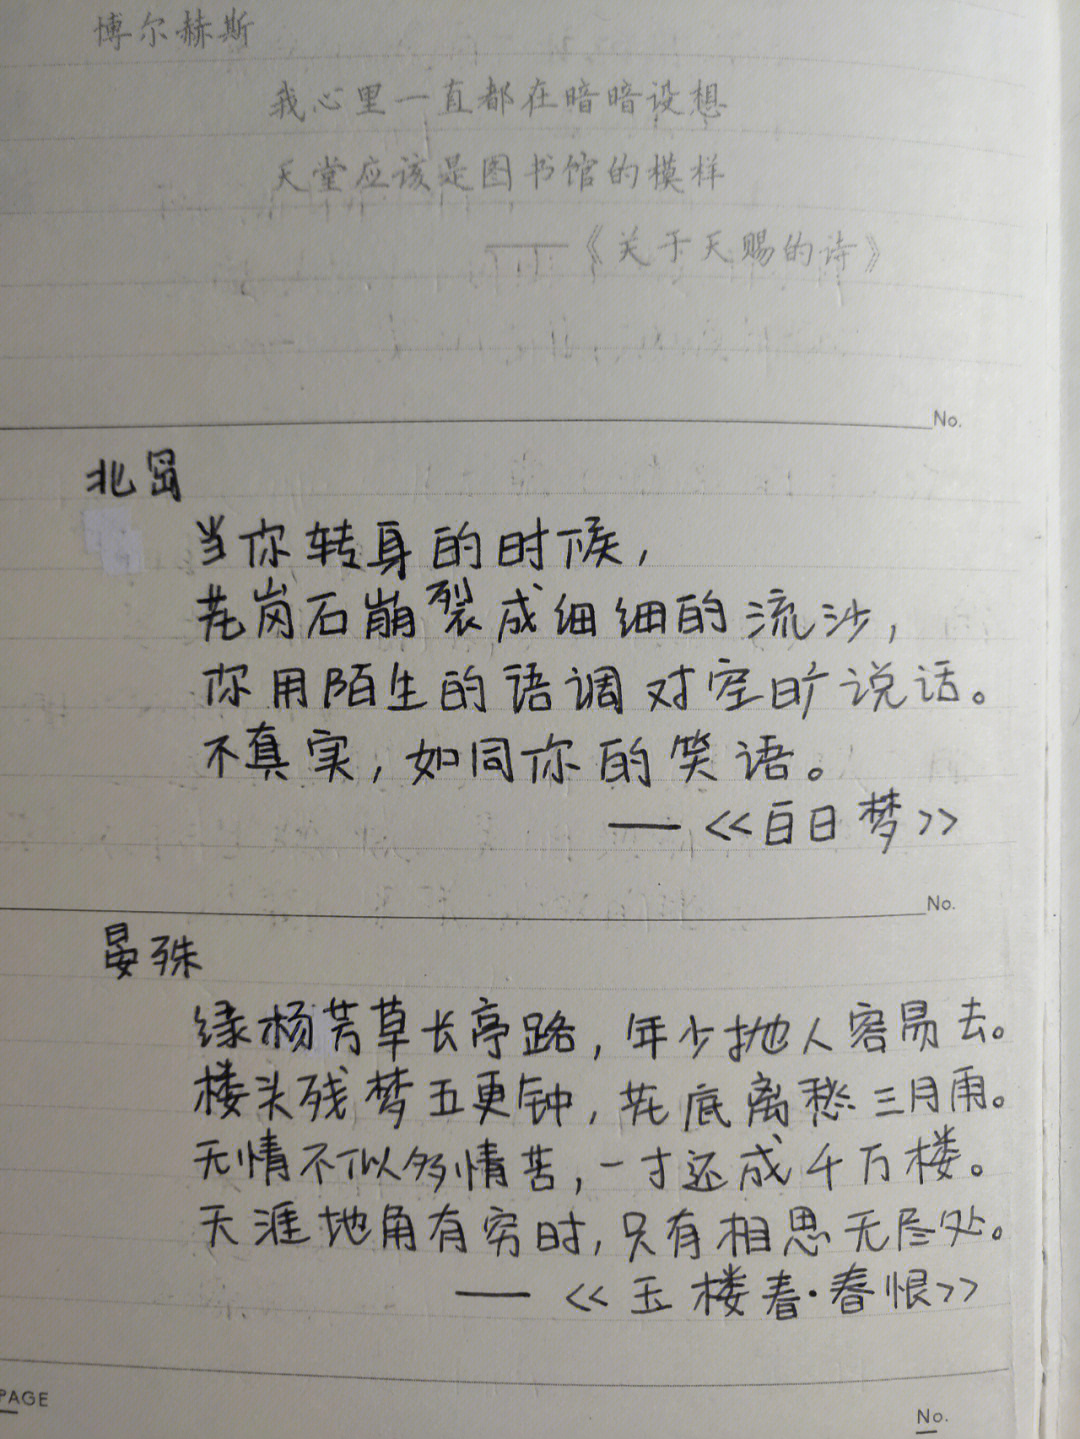 博尔赫斯
我心里一直都在暗暗设想
天堂应该是图书馆的模样
——《关于天赐的诗》
No.
北岛
当你转身的时候,
花岗石崩裂成细细的流沙,
你用陌生的语调对空旷说话。
不真实,如同你的笑语。
—— <<白日梦>>
No.
晏殊
绿杨芳草长亭路,年少抛人容易去。
楼头残梦五更钟,花底离愁三月雨。
无情不似多情苦,一寸还成千万楼。
天涯地角有穷时,只有相思无尽处。
—— <<玉楼春·春恨>>
PAGE
No.